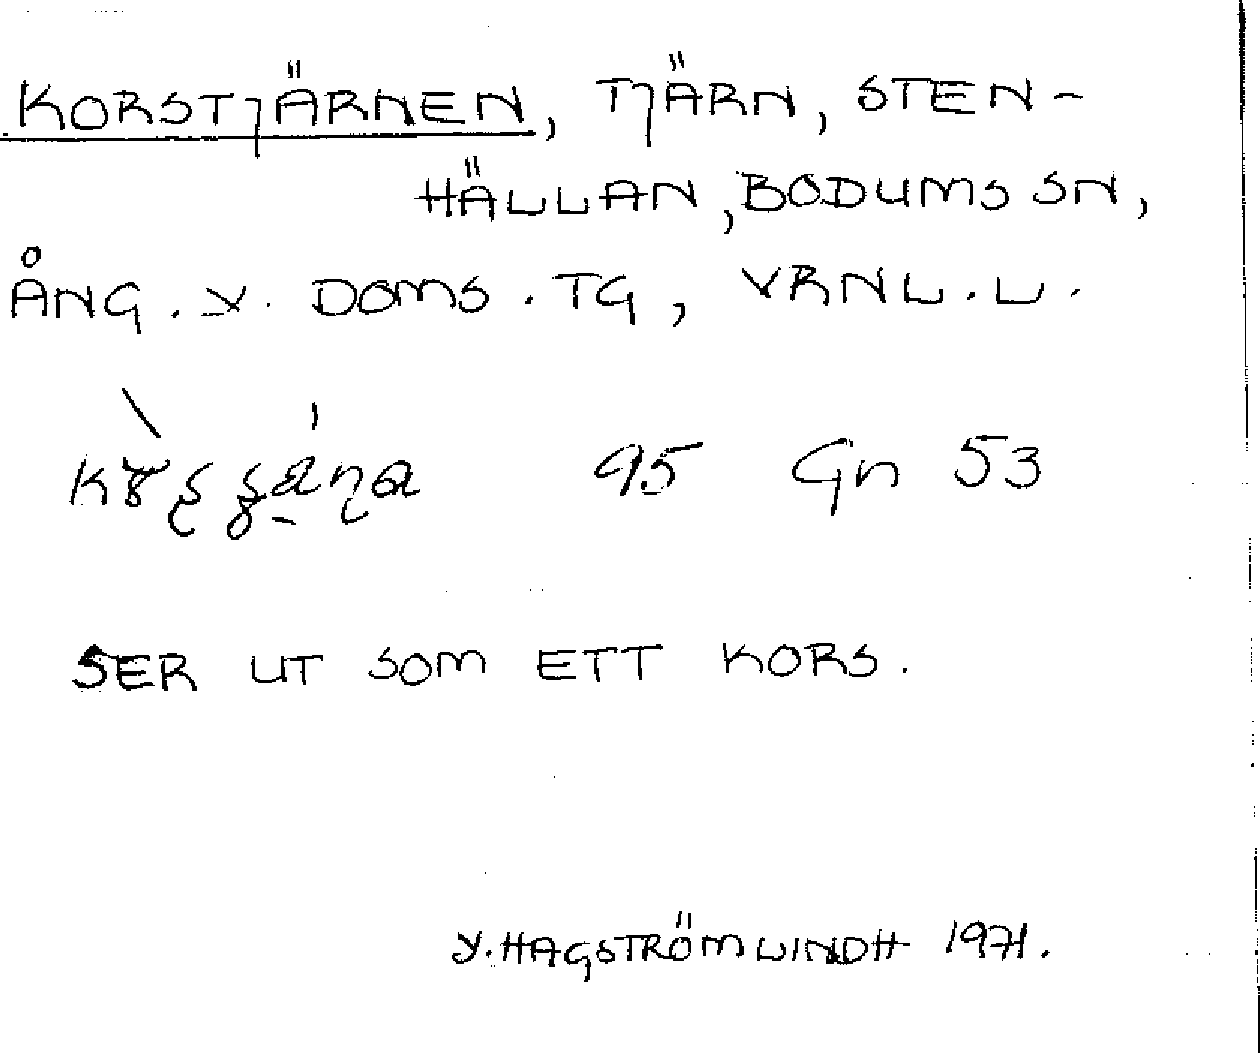 KORSTJÄRNEN, TJÄRN, STEN-
HÄLLAN, BODUMS SN,
ÅNG. V. DOMS. TG, VRNL. L.
95 Gn 53
SER UT SOM ETT KORS.
Y. HAGSTRÖM LINDH 1971.